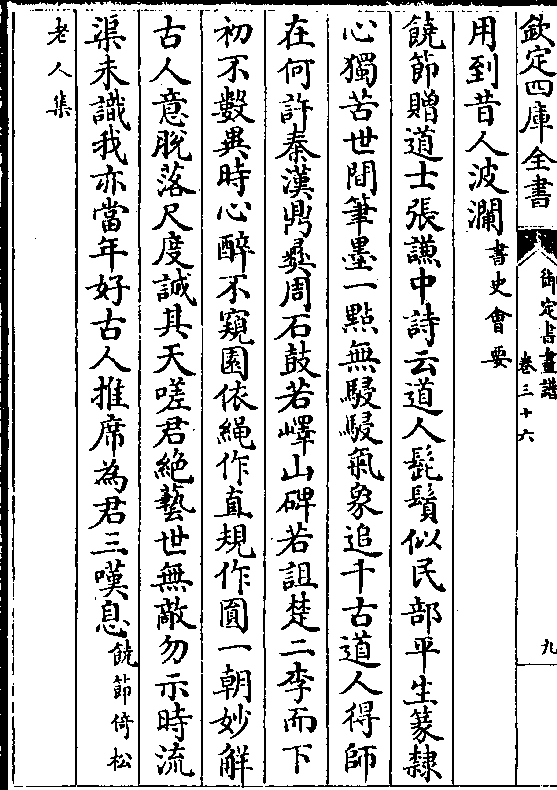 欽定四庫全書
御定書畫譜
卷三十六
九
用到昔人波瀾書史會要
饒節贈道士張謙中詩云道人髭鬚似民部平生篆隸
心獨苦世間筆墨一點無駸駸氣象追千古道人得師
在何許秦漢鼎彛周石鼓若嶧山碑若詛楚二李而下
初不數異時心醉不窺園依繩作直規作圓一朝妙解
古人意脫落尺度誠其天嗟君絶藝世無敵勿示時流
渠未識我亦當年好古人推席為君三嘆息饒節倚松
老人集